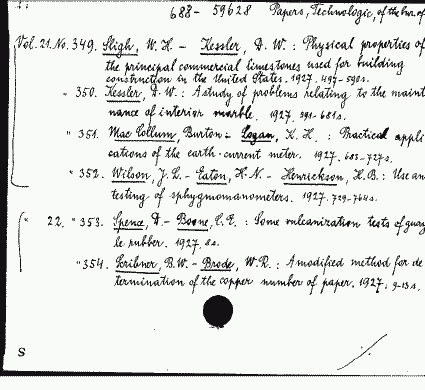 688-59628 Papers, Technologic, of the bur. of
Vol. 21. No. 349. Sligh, W. H. - Kessler, D. W.: Physical properties of
the principal commercial limestones used for building
construction in the United States. 1927. 497-590 s.
" 350. Kessler, D. W.: A study of problems relating to the maint
nance of interior marble. 1927. 591-681 s.
" 351. Mac Collum, Burton - Logan, K. H.: Practical appli
cations of the earth-current meter. 1927. 683-727 s.
" 352. Wilson, J. L. - Eaton, H. N. - Henrickson, H. B.: Use an
testing of sphygmomanometers. 1927. 729-764 s.
" 22. " 353. Spence, D. - Boone, C. E.: Some vulcanization tests of guay
le rubber. 1927. 8 s.
" 354. Scribner, B. W. - Brode, W. R.: A modified method for de
termination of the copper number of paper. 1927. 9-13 s.
S